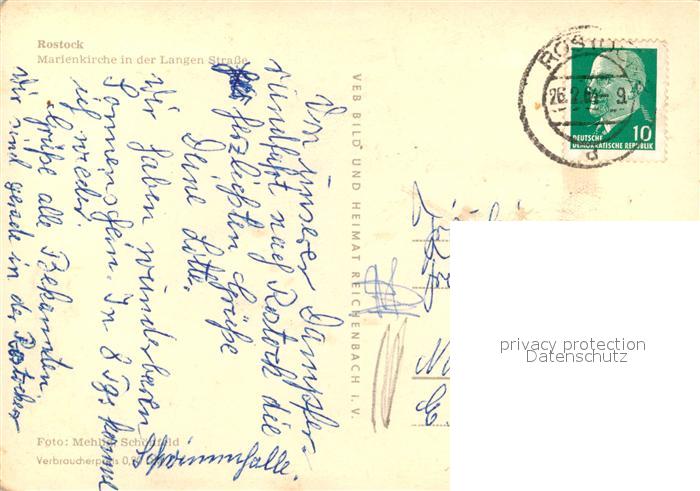 Rostock
Marienkirche in der Langen Straße
Von unserer Dampfer-
rundfahrt nach Rostock die
herzlichsten Grüße
Deine Lotte.
Wir haben wunderbaren
Sonnenschein. In 8 Tgs komme
ich wieder.
Grüße alle Bekannten.
Wir sind gerade in der Rostocker
Schwimmhalle.
Foto: Schönfeld
Verbraucherpreis
VEB BILD UND HEIMAT REICHENBACH I. V.
ROSTOCK
26.2.64 - 9
d
10
DEUTSCHE
DEMOKRATISCHE REPUBLIK
privacy protection
Datenschutz